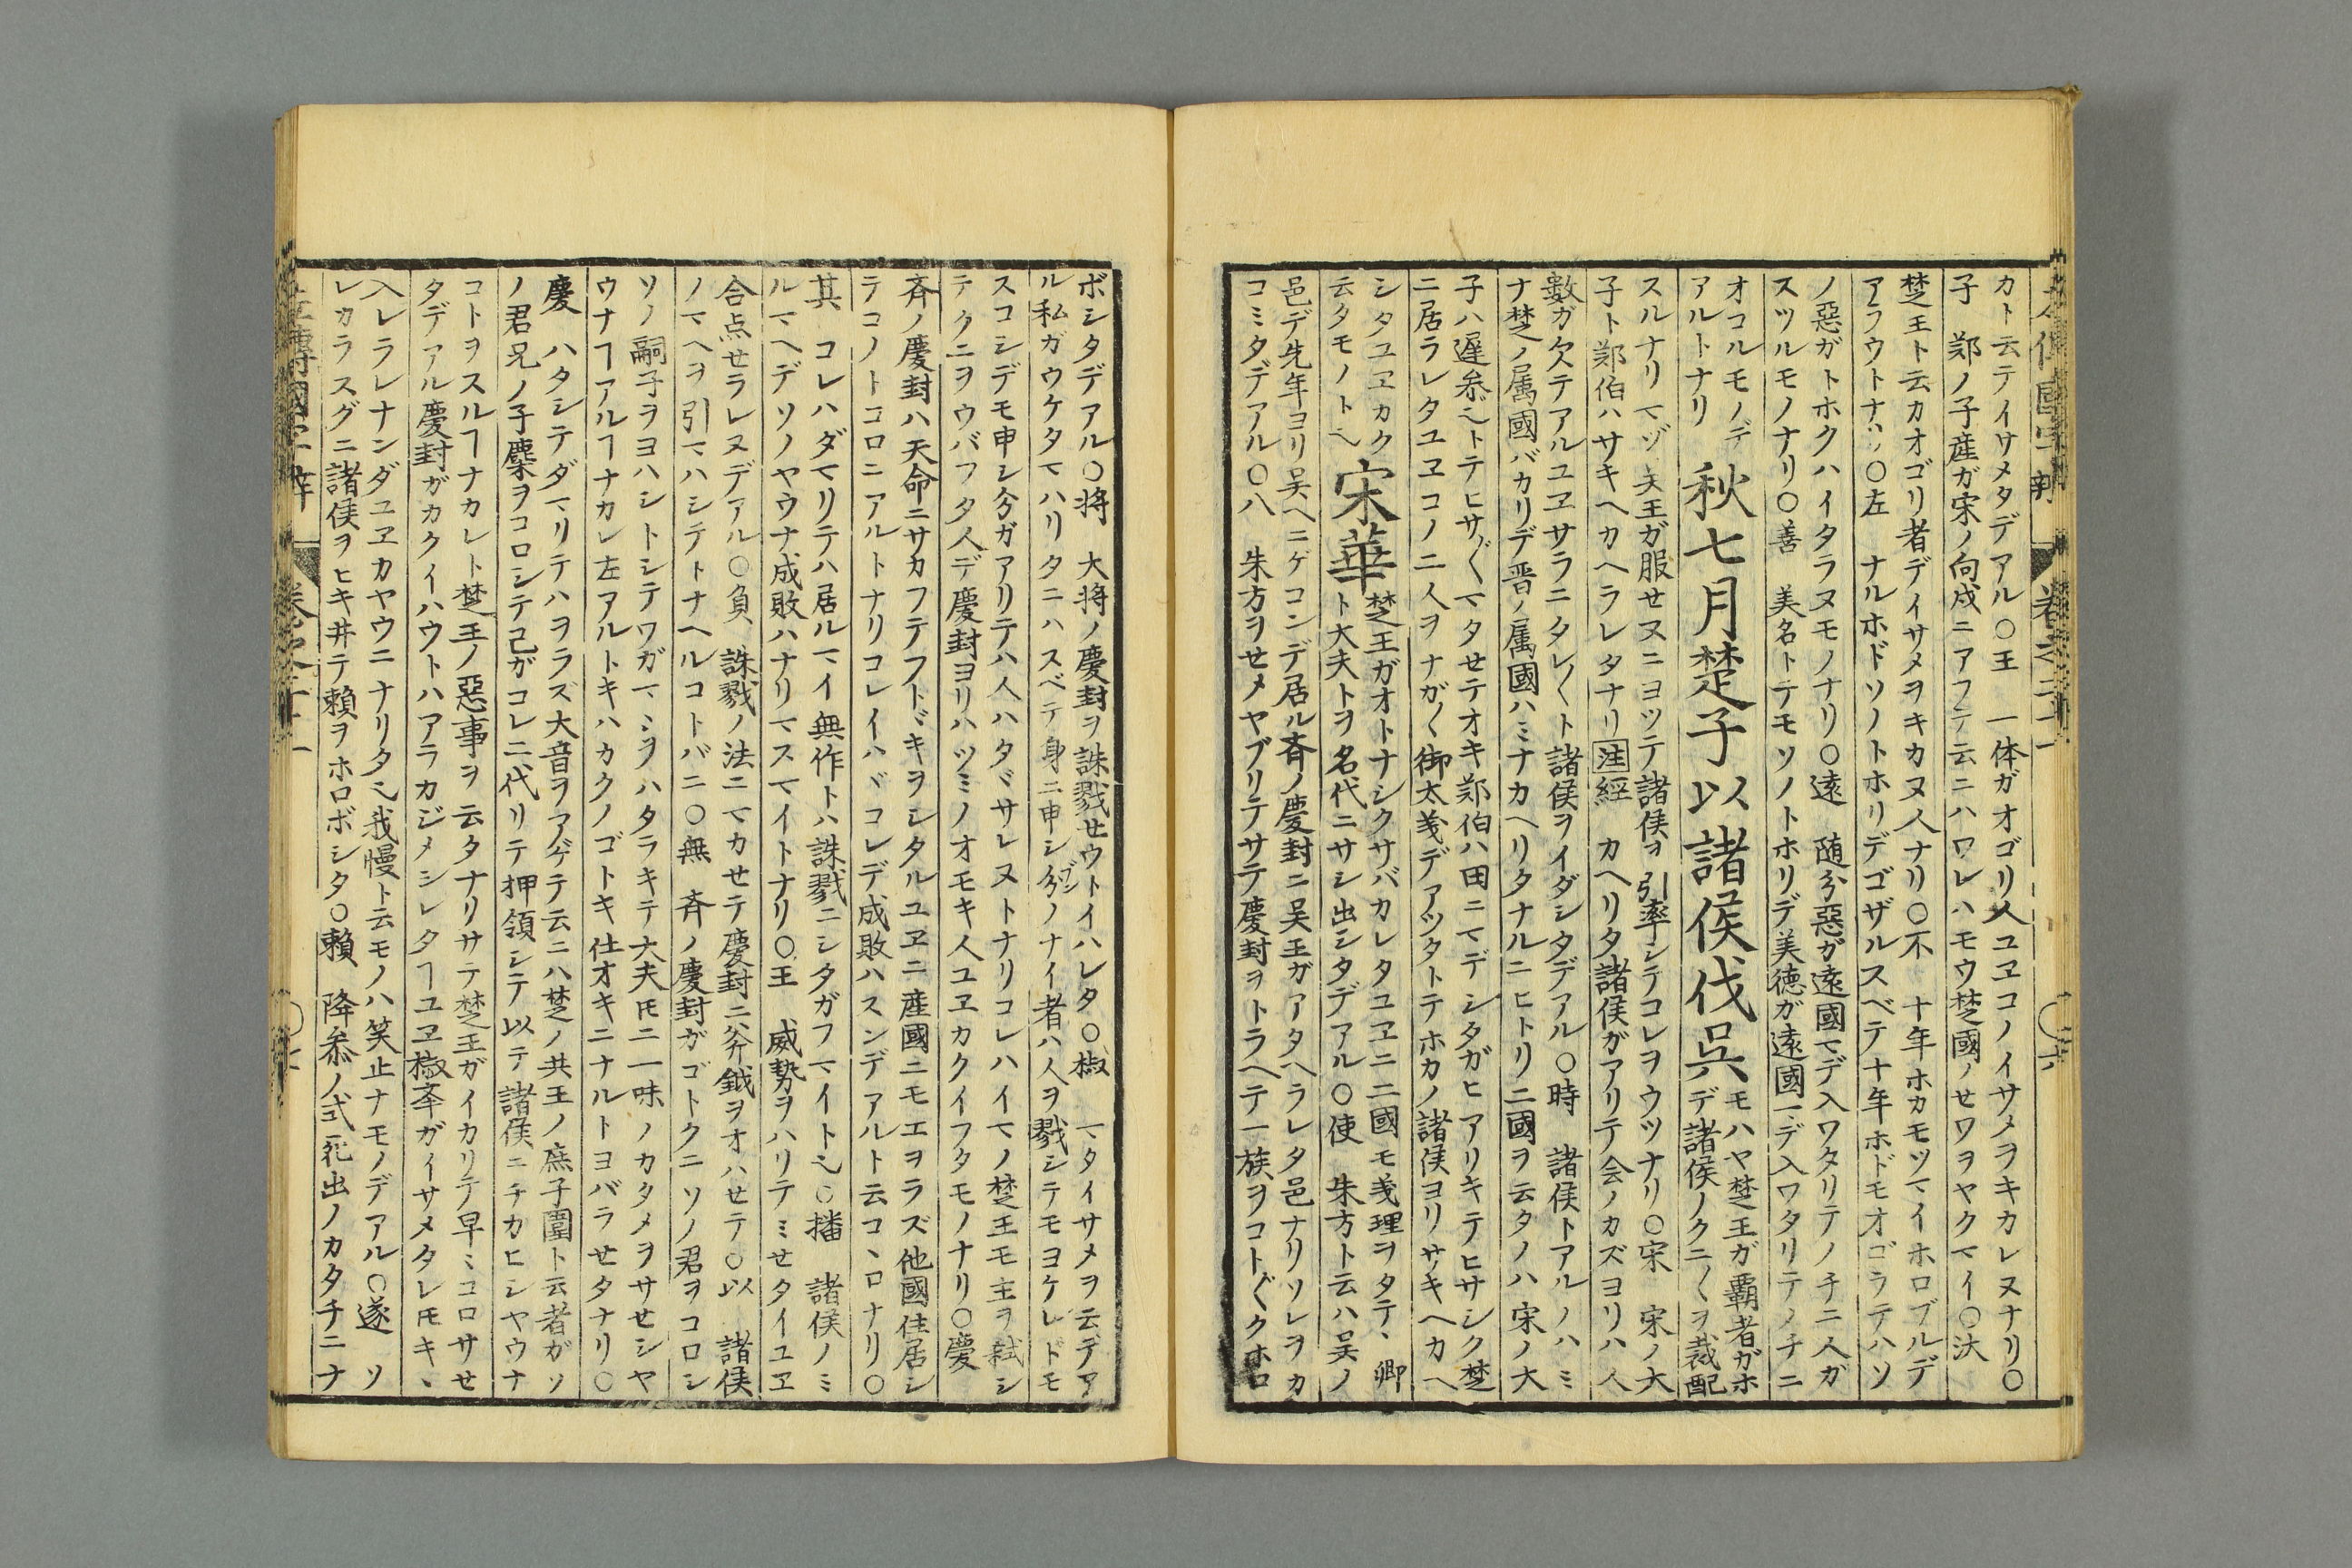 左傳國字辯 卷之二十一 〇六
カト云テイサメタデアル〇王 一体ガオゴリ人ユヱコノイサメヲキカレヌナリ〇
子 鄭ノ子産ガ宋ノ向戌ニアフテ云ニハワレハモウ楚國ノせワヲヤクマイ〇汰
楚王ト云カオゴリ者デイサメヲキカヌ人ナリ〇不 十年ホカモツマイホロブルデ
アラウトナリ〇左 ナルホドソノトホリデゴザルスベテ十年ホドモオゴラテハソ
ノ惡ガトホクハイタラヌモノナリ〇遠 随分惡ガ遠國マデ入ワタリテノチニ人ガ
スツルモノナリ〇善 美名トテモソノトホリデ美徳ガ遠國マデ入ワタリテノチニ
オコルモノデ
アルトナリ
秋七月楚子以諸侯伐呉
モハヤ楚王ガ覇者ガホ
デ諸侯ノクニ〱ヲ裁配
スルナリマヅ呉王ガ服せヌニヨツテ諸侯ヲ引率シテコレヲウツナリ〇宋 宋ノ大
子ト鄭伯ハサキヘカヘラレタナリ注經 カヘリタ諸侯ガアリテ会ノカズヨリハ人
數ガ欠テアルユヱサラニタレ〱ト諸侯ヲイダシタデアル〇時 諸侯トアルノハミ
ナ楚ノ属國バカリデ晋ノ属國ハミナカヘリタナルニヒトリ二國ヲ云タノハ宋ノ大
子ハ遅参〱トテヒサ〲マタせテオキ鄭伯ハ田ニマデシタガヒアリキテヒサシク楚
ニ居ラレタユヱコノ二人ヲナガ〱御太義デアツタトテホカノ諸侯ヨリサキヘカヘ
シタユヱカク
云タモノト也
宋華
楚王ガオトナシクサバカレタユヱニ二國モ義理ヲタテヽ卿
ト大夫トヲ名代ニサシ出シタデアル〇使 朱方ト云ハ呉ノ
邑デ先年ヨリ呉ヘニゲコンデ居ル斉ノ慶封ニ呉王ガアタヘラレタ邑ナリソレヲカ
コミタデアル〇八 朱方ヲせメヤブリテサテ慶封ヲトラヘテ一族ヲコト〲クホロ
ボシタデアル〇将 大将ノ慶封ヲ誅戮せウトイハレタ〇椒 マタイサメヲ云デア
ル私ガウケタマハリタニハスベテ身ニ申シ分ノナイ者ハ人ヲ戮シテモヨケレドモ
スコシデモ申シ分ガアリテハ人ハタヾサレヌトナリコレハイマノ楚王モ主ヲ弑シ
テクニヲウバフタ人デ慶封ヨリハツミノオモキ人ユヱカクイフタモノナリ〇慶
斉ノ慶封ハ天命ニサカフテフトヾキヲシタルユヱニ産國ニモエヲラズ他國住居シ
テコノトコロニアルトナリコレイハヾコレデ成敗ハスンデアルト云コヽロナリ〇
其 コレハダマリテハ居ルマイ無作トハ誅戮ニシタガフマイト也〇播 諸侯ノミ
ルマヘデソノヤウナ成敗ハナリマスマイトナリ〇王 威勢ヲハリテミせタイユヱ
合点せラレヌデアル〇負 誅戮ノ法ニマカせテ慶封ニ斧鉞ヲオハせテ〇以 諸侯
ノマヘヲ引マハシテトナヘルコトバニ〇無 斉ノ慶封ガゴトクニソノ君ヲコロシ
ソノ嗣子ヲヨハシトシテワガマヽヲハタラキテ大夫𪜈ニ一味ノカタメヲサせシヤ
ウナヿアルヿナカレ左アルトキハカクノゴトキ仕オキニナルトヨバラせタナリ〇
慶 ハタシテダマリテハヲラズ大音ヲアゲテ云ニハ楚ノ共王ノ庶子圍ト云者ガソ
ノ君兄ノ子麇ヲコロシテ己ガコレニ代リテ押領シテ以テ諸侯ニチカヒシヤウナ
コトヲスルヿナカレト楚王ノ惡事ヲ云タナリサテ楚王ガイカリテ早ミコロサせ
タデアル慶封ガカクイハウトハアラカジメシレタヿユヱ椒挙ガイサメタレ𪜈キヽ
入レラレナンダユヱカヤウニナリタ也我慢ト云モノハ笑止ナモノデアル〇遂 ソ
レカラスグニ諸侯ヲヒキ井テ頼ヲホロボシタ〇賴 降参ノ式死出ノカタチニナ
左傳國字辯 卷之二十一